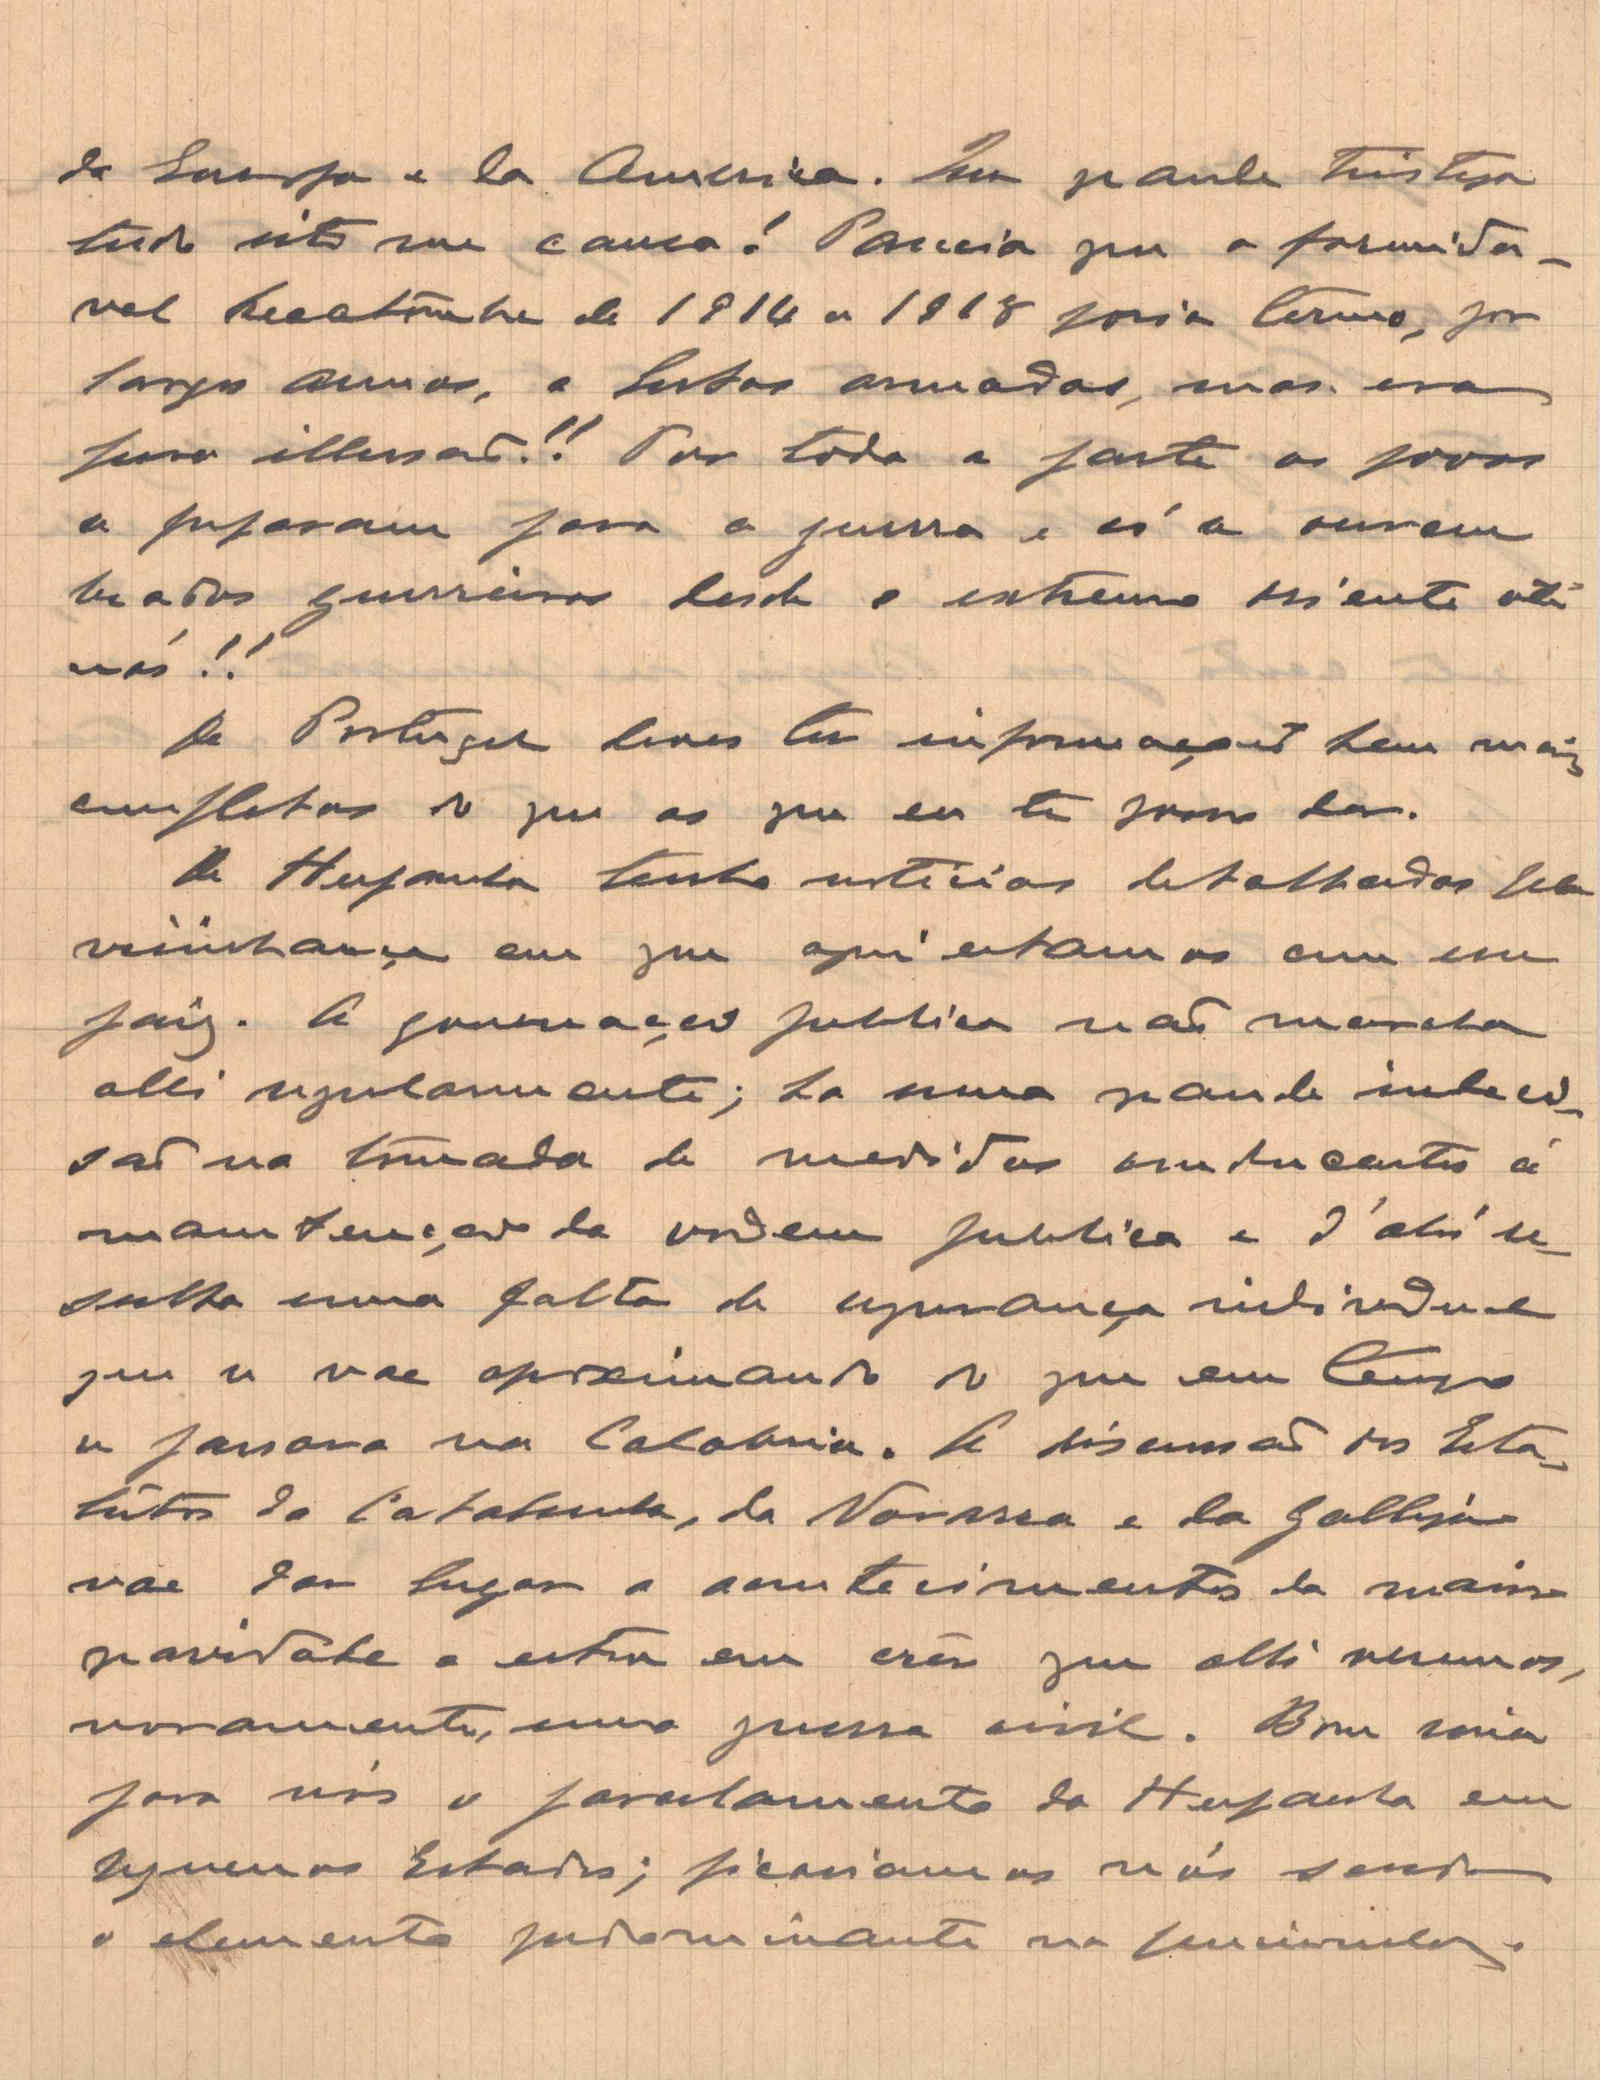 da Europa e da America. Que grande tristesa
tudo isto me causa! Parecia que a formida-
vel hecatõmbe de 1914 a 1918 poria termo, por
largos annos, a lutas armadas, mas era
pura illusaõ!! Por toda a parte os povos
se preparam para a guerra e só se ouvem
brados guerreiros desde o extremo oriente até
nós!!
De Portugal deves ter informações bem mais
completas do que as que eu te posso dar.
De Hespanha tenho noticias detalhadas pela
visinhança em que aqui estamos com esse
paiz. A governação publica naõ marcha
alli regularmente; ha uma grande indeci-
saõ na tomada de medidas conducentes á
manutenção da ordem publica e d'ahi re-
sulta uma falta de segurança individual
que se vae aproximando do que em tempo
se passava na Calabria. A discussaõ dos Esta-
tutos da Catalunha, da Navarra e da Galliza
vae dar lugar a acontecimentos da maior
gravidade e estou em crêr que alli veremos,
novamente, uma guerra civil. Bom seria
para nós o parcelamento da Hespanha em
pequenos Estados; ficariamos nós sendo
o elemento predominante na peninsula.